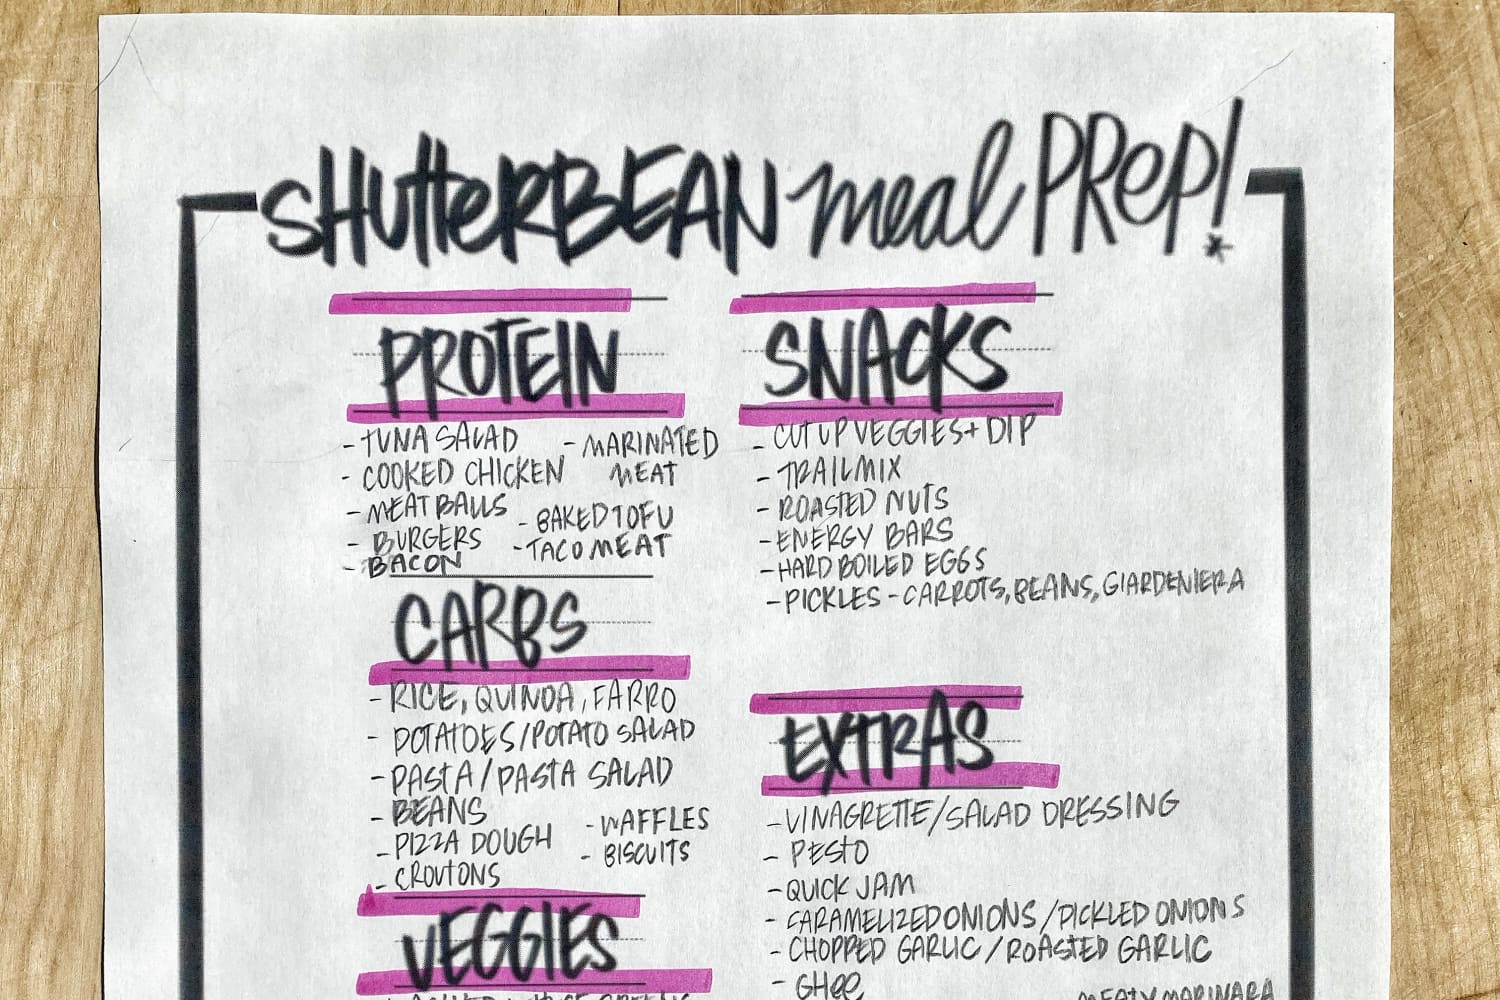 SHUTTERBEAN meal PREP!
PROTEIN
- TUNA SALAD
- COOKED CHICKEN
- MEATBALLS
- BURGERS
- BACON
- MARINATED
MEAT
- BAKED TOFU
- TACO MEAT
CARBS
- RICE, QUINOA, FARRO
- POTATOES/POTATO SALAD
- PASTA/PASTA SALAD
- BEANS
- PIZZA DOUGH
- CROUTONS
- WAFFLES
- BISCUITS
VEGGIES
SNACKS
- CUT UP VEGGIES + DIP
- TRAIL MIX
- ROASTED NUTS
- ENERGY BARS
- HARD BOILED EGGS
- PICKLES - CARROTS, BEANS, GIARDENIERA
EXTRAS
- VINAGRETTE/SALAD DRESSING
- PESTO
- QUICK JAM
- CARAMELIZED ONIONS/PICKLED ONIONS
- CHOPPED GARLIC/ROASTED GARLIC
- GHEE
MEATY MARINARA